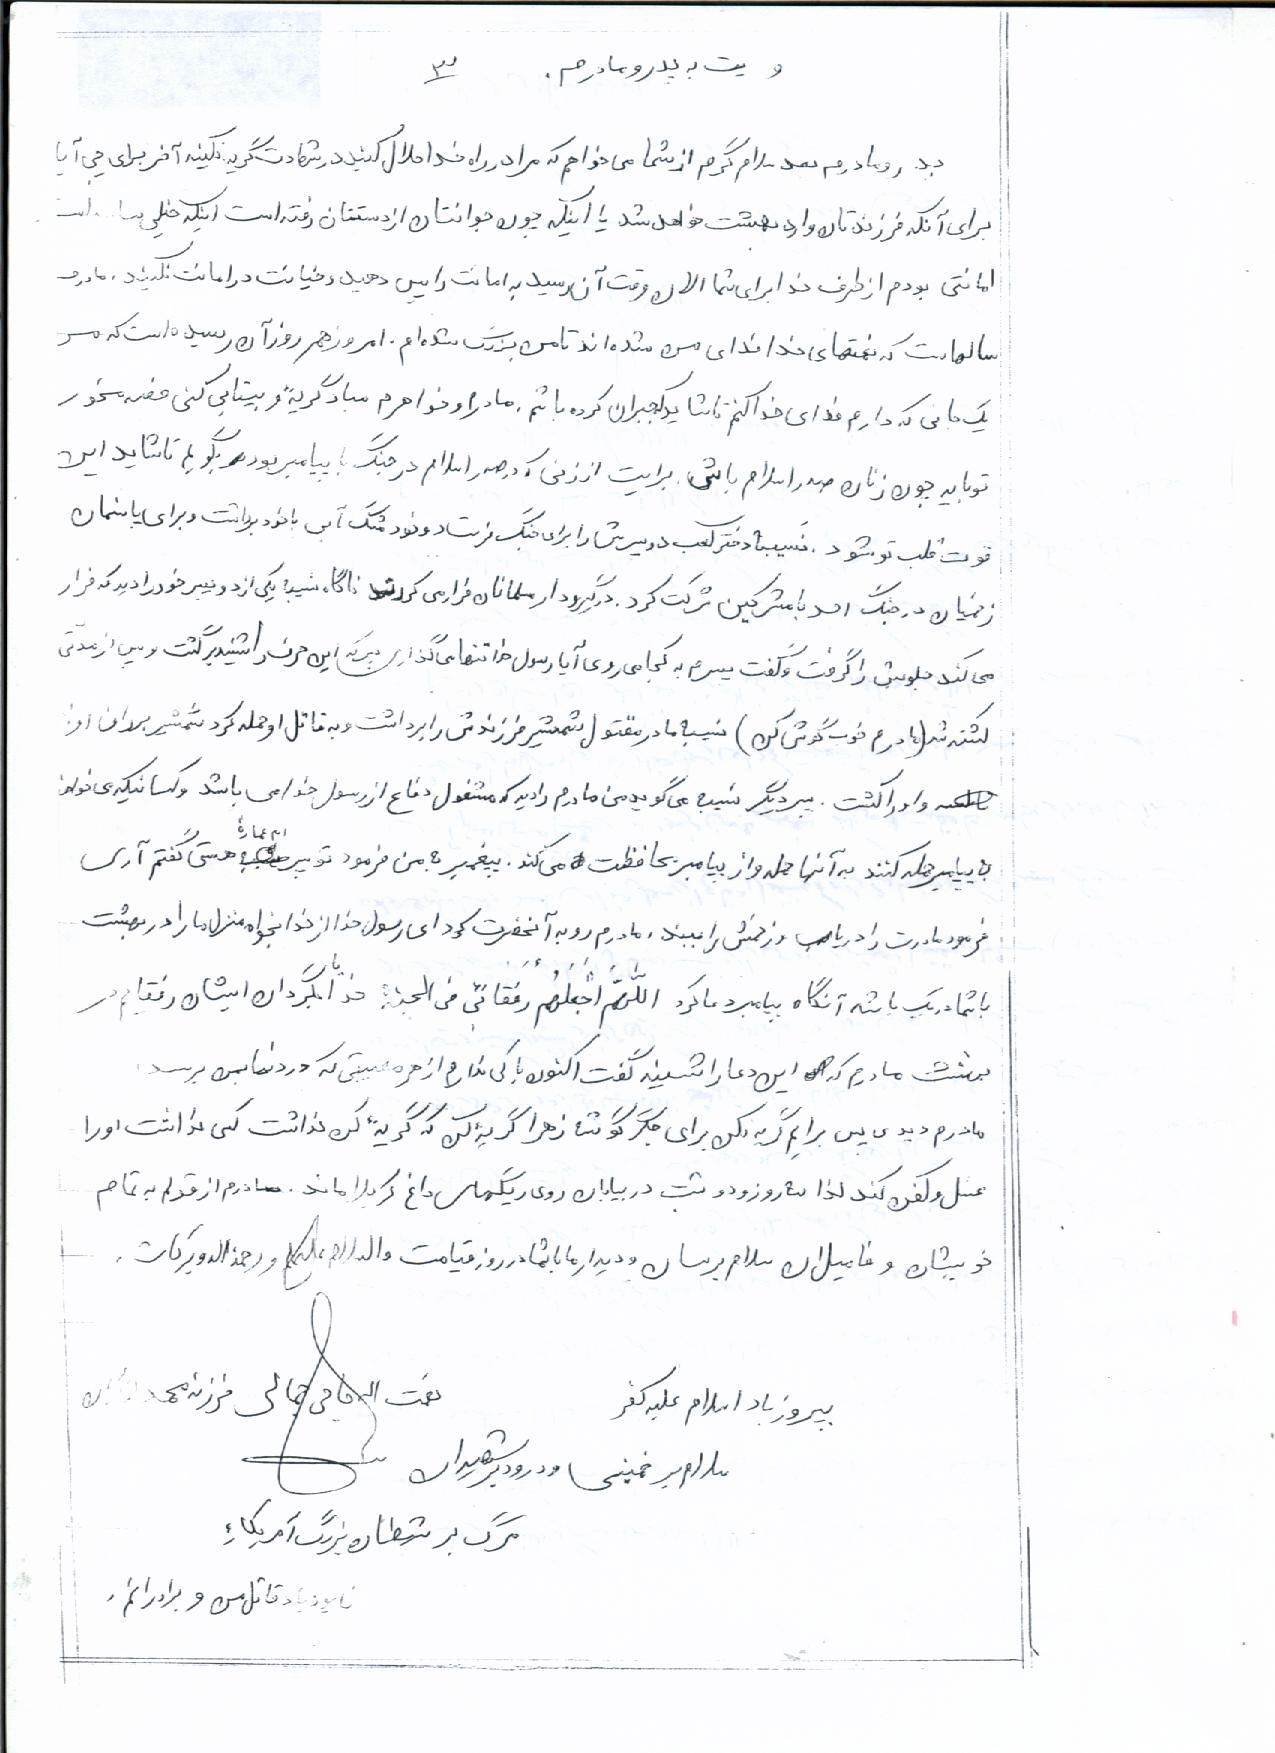 وصیت به پدر و مادرم. ۳
پدر و مادرم بعد سلام گرم از شما می خواهم که مرا در راه خدا حلال کنید در شهادت گریه نکنید آخر برای چی آیا
برای آنکه فرزندتان وارد بهشت خواهد شد یا اینکه چون جوانتان از دستتان رفته است اینکه خیلی
امانتی بودم از طرف خدا برای شما الان وقت آن رسید به امانت را پس دهید و خیانت در امانت نکنید. مادرم
سالهاست که نعمتهای خدا فدای من شده اند تا من بزرگ شده ام. امروز هم روز آن رسیده است که من
یک جانی که دارم فدای خدا کنم تا شاید جبران کرده باشم. مادر و خواهرم مبادا گریه و بیتابی کنی غصه مخور
تو باید چون زنان صدر اسلام باشی. برایت از زنی که در صدر اسلام در جنگ با پیامبر بود بگویم تا شاید این
قوت قلب تو شود. نسیبه دختر کعب دو پسرش را برای جنگ فرستاد و خود مشک آبی با خود برداشت و برای پانسمان
زخمیان در جنگ احد با مشرکین شرکت کرد. در گیرودار مسلمانان فرار می کردند ناگاه نسیبه یکی از دو پسر خود را دید که فرار
می کند جلویش را گرفت و گفت پسرم به کجا می روی آیا رسول خدا تنها می گذاری پسر که این حرف را شنید برگشت و پس از مدتی
کشته شد (مادرم خوب گوش کن) نسیبه مادر مقتول شمشیر فرزندش را برداشت و به قاتل او حمله کرد شمشیر بر ران او
و او را کشت. پسر دیگر نسیبه می گوید من مادرم را دید که مشغول دفاع از رسول خدا می باشد و کسانیکه می خواهند
به پیامبر حمله کنند به آنها حمله و از پیامبر محافظت می کند. پیغمبر به من فرمود تو پسر ام عمارة هستی گفتم آری
فرمود مادرت را دریاب و زخمش را ببند. مادرم رو به آنحضرت کرد ای رسول خدا از خدا بخواه منزل ما را در بهشت
با شما در یک باشد آنگاه پیامبر دعا کرد اللّهُمَّ اجْعَلْهُم رُفَقائی فی الجنة خدایا بگردان ایشان رفقایم در
بهشت مادرم که این دعا را شنید گفت اکنون باکی ندارم از هر مصیبتی که در دنیا بمن برسد
مادرم دیدی پس برایم گریه نکن برای جگر گوشه زهرا گریه کن که گریه کن نداشت کسی نداشت او را
غسل و کفن کند لذا سه روز و دو شب در بیابان روی ریگهای داغ کربلا ماند. مادرم از قولم به تمام
خویشان و فامیلان سلام برسان و دیدار ما با شما در روز قیامت والسلام علیکم و رحمة الله و برکاته.
پیروز باد اسلام علیه کفر
نعمت الله جمالی فرزند محمد
سلام بر خمینی و درود بر شهیدان
مرگ بر شیطان بزرگ آمریکا
نابود باد قاتل من و برادرانم.